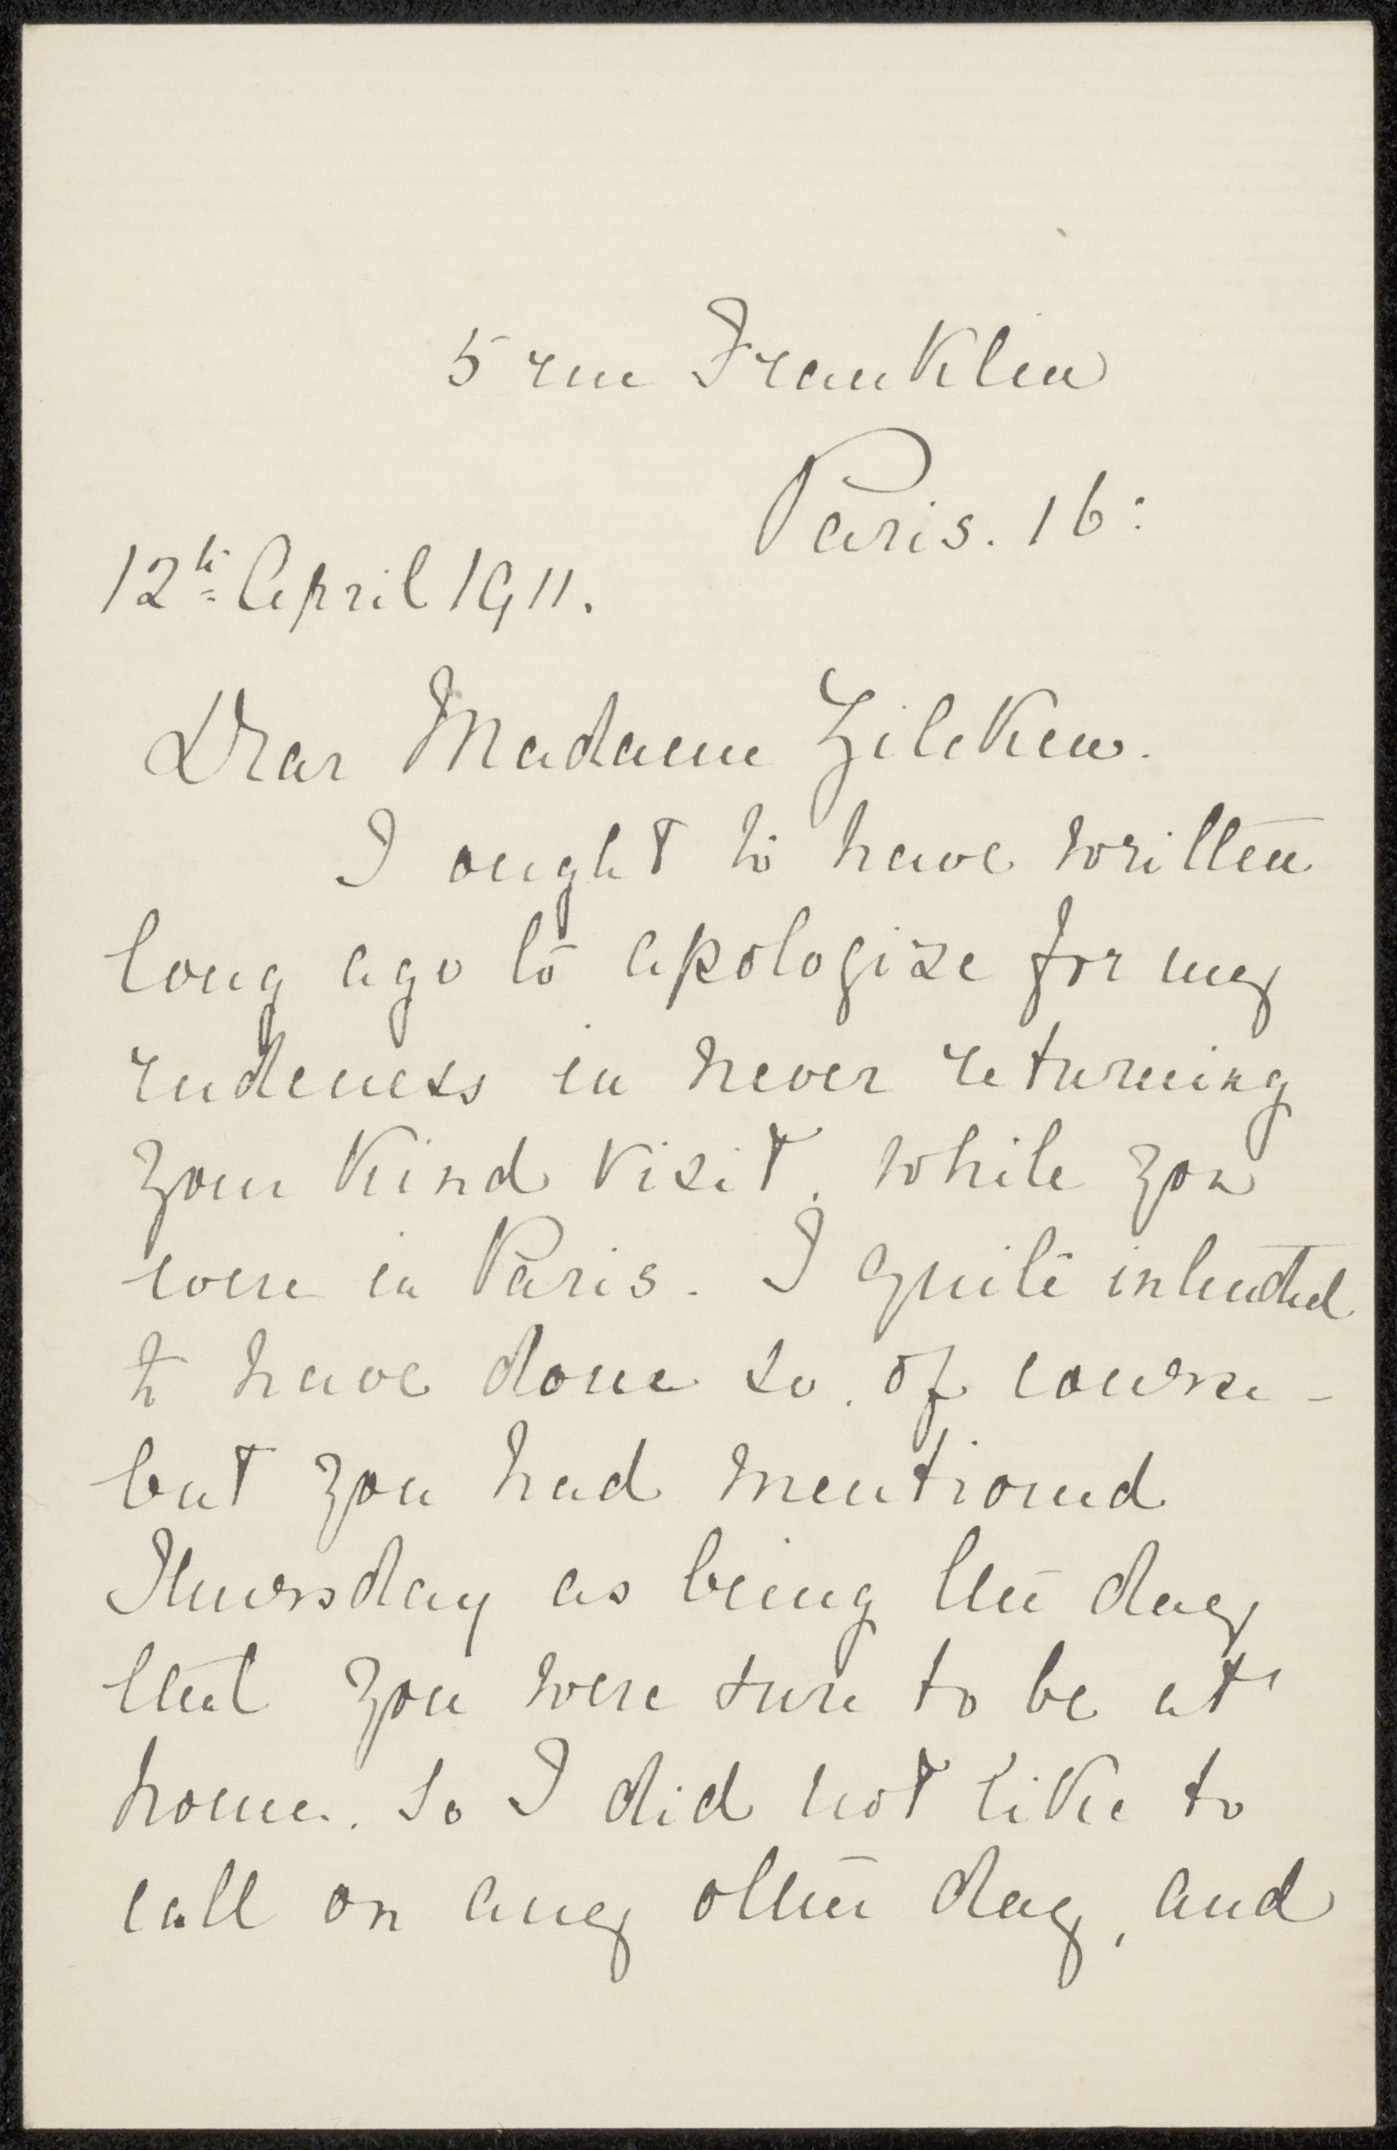 5 rue Franklin
Paris. 16:
12th April 1911.
Dear Madame Zilcken.
I ought to have written
long ago to apologize for my
rudeness in never returning
your kind visit, while you
were in Paris. I quite intended
to have done so, of course -
but you had mentioned
Thursday as being the day
that you were sure to be at
home. So I did not like to
call on any other day, and